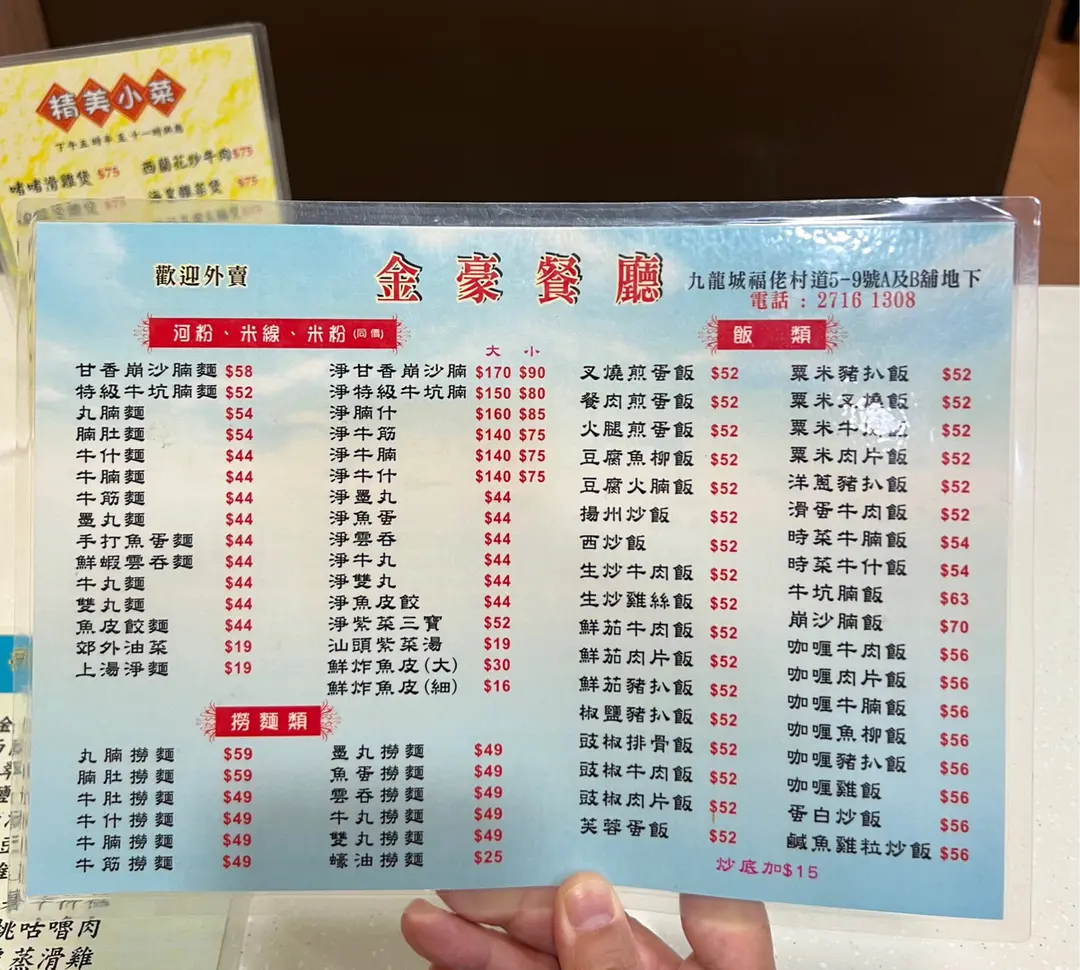 精美小菜
下午五時半至十一時供應
啫啫滑雞煲 $75
西蘭花炒牛肉 $75
海皇雜菜煲 $75
歡迎外賣
金豪餐廳
九龍城福佬村道5-9號A及B舖地下
電話：2716 1308
河粉、米線、米粉(同價)
甘香崩沙腩麵 $58
特級牛坑腩麵 $52
丸腩麵 $54
腩肚麵 $54
牛什麵 $44
牛腩麵 $44
牛筋麵 $44
墨丸麵 $44
手打魚蛋麵 $44
鮮蝦雲吞麵 $44
牛丸麵 $44
雙丸麵 $44
魚皮餃麵 $44
郊外油菜 $19
上湯淨麵 $19
大 小
淨甘香崩沙腩 $170 $90
淨特級牛坑腩 $150 $80
淨腩什 $160 $85
淨牛筋 $140 $75
淨牛腩 $140 $75
淨牛什 $140 $75
淨墨丸 $44
淨魚蛋 $44
淨雲吞 $44
淨牛丸 $44
淨雙丸 $44
淨魚皮餃 $44
淨紫菜三寶 $52
汕頭紫菜湯 $19
鮮炸魚皮(大) $30
鮮炸魚皮(細) $16
撈麵類
丸腩撈麵 $59
腩肚撈麵 $59
牛肚撈麵 $49
牛什撈麵 $49
牛腩撈麵 $49
牛筋撈麵 $49
墨丸撈麵 $49
魚蛋撈麵 $49
雲吞撈麵 $49
牛丸撈麵 $49
雙丸撈麵 $49
蠔油撈麵 $25
飯類
叉燒煎蛋飯 $52
餐肉煎蛋飯 $52
火腿煎蛋飯 $52
豆腐魚柳飯 $52
豆腐火腩飯 $52
揚州炒飯 $52
西炒飯 $52
生炒牛肉飯 $52
生炒雞絲飯 $52
鮮茄牛肉飯 $52
鮮茄肉片飯 $52
鮮茄豬扒飯 $52
椒鹽豬扒飯 $52
豉椒排骨飯 $52
豉椒牛肉飯 $52
豉椒肉片飯 $52
芙蓉蛋飯 $52
粟米豬扒飯 $52
粟米叉燒飯 $52
粟米牛 $52
粟米肉片飯 $52
洋蔥豬扒飯 $52
滑蛋牛肉飯 $52
時菜牛腩飯 $54
時菜牛什飯 $54
牛坑腩飯 $63
崩沙腩飯 $70
咖喱牛肉飯 $56
咖喱肉片飯 $56
咖喱牛腩飯 $56
咖喱魚柳飯 $56
咖喱豬扒飯 $56
咖喱雞飯 $56
蛋白炒飯 $56
鹹魚雞粒炒飯 $56
炒底加$15
咕嚕肉
蒸滑雞